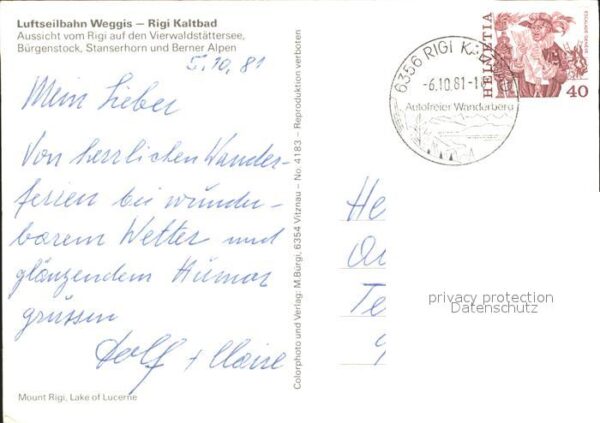 Luftseilbahn Weggis – Rigi Kaltbad
Aussicht vom Rigi auf den Vierwaldstättersee,
Bürgenstock, Stanserhorn und Berner Alpen
5.10.81
Mein Lieber
Von herrlichen Wander-
ferien bei wunder-
barem Wetter und
glänzendem Humor
grüssen
Dolf + Claire
Mount Rigi, Lake of Lucerne
Colorphoto und Verlag: M. Bürgi, 6354 Vitznau – No. 4183 – Reproduktion verboten
6356 RIGI KA
-6.10.81-1
Autofreier Wanderberg
HELVETIA
40
He
Te
privacy protection
Datenschutz